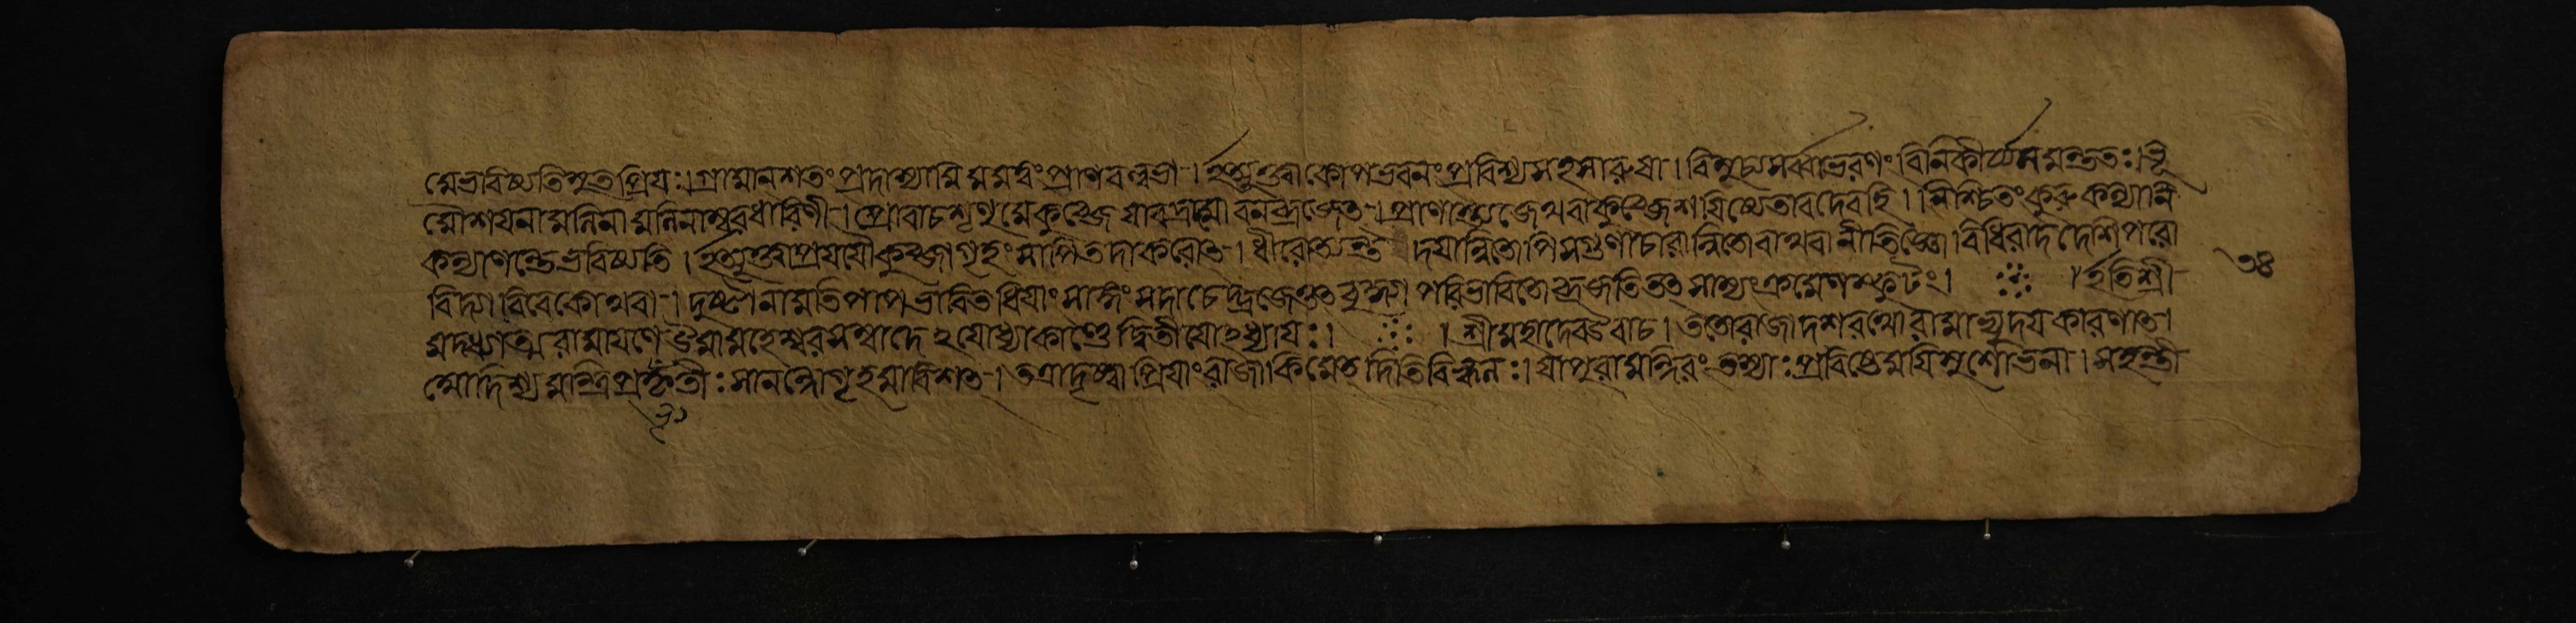 মে ভবিষ্যতি সুত প্রিয়ঃ । গ্রামান শতং প্রদাস্যামি মম ত্বং প্রাণবল্লভা । ইত্যুক্ত্বা কোপভবনং প্রবিশ্য সহসা রুষা । বিমুচ্য সর্ব্বাভরণং বিনিকীর্য্য সমন্ততঃ । ভূ
মৌ শয়না মলিনা মলিনাম্বরধারিণী । প্রোবাচ শৃণু মে কুব্জে যাবদ্রামো বনম্ব্রজেৎ । প্রাণাংস্ত্যজেথবা কুব্জে শয়িষ্যে তাবদেবহি । নিশ্চিতং কুরু কল্যানি
কল্যাণন্তে ভবিষ্যতি । ইত্যুক্ত্বা প্রযযৌ কুব্জা গৃহং সাপি তদাকরোৎ । ধীরোত্যন্ত দয়ান্বিতোপি সগুণাচারান্বিতো বাথবা নীতিজ্ঞো বিধিবাদদেশিপরো
বিদ্যাবিবেকোথবা । দুষ্টানামতিপাপভাবিতধিয়াং সাঙ্গং সদা চেদ্ব্রজেৎ তদ্বুদ্ধ্যা পরিভাবিতো ব্রজতি তৎ সাম্যং ক্রমেণ স্ফুটং । ইতি শ্রী
মদধ্যাত্মরামায়ণে উমামহেশ্বরসম্বাদে ২যোধ্যাকাণ্ডে দ্বিতীয়োঽধ্যায়ঃ । শ্রীমহাদেব উবাচ । ততো রাজা দশরথো রামাভ্যুদয়কারণাৎ ।
আদিশ্য মন্ত্রিপ্রকৃতীঃ সানন্দো গৃহমাবিশৎ । তত্রাদৃষ্ট্বা প্রিয়াং রাজা কিমেতদিতি বিহ্বলঃ । যা পুরা মন্দিরং তস্যাঃ প্রবিষ্টে ময়ি সুশোভনা । সহন্তী
৩৪